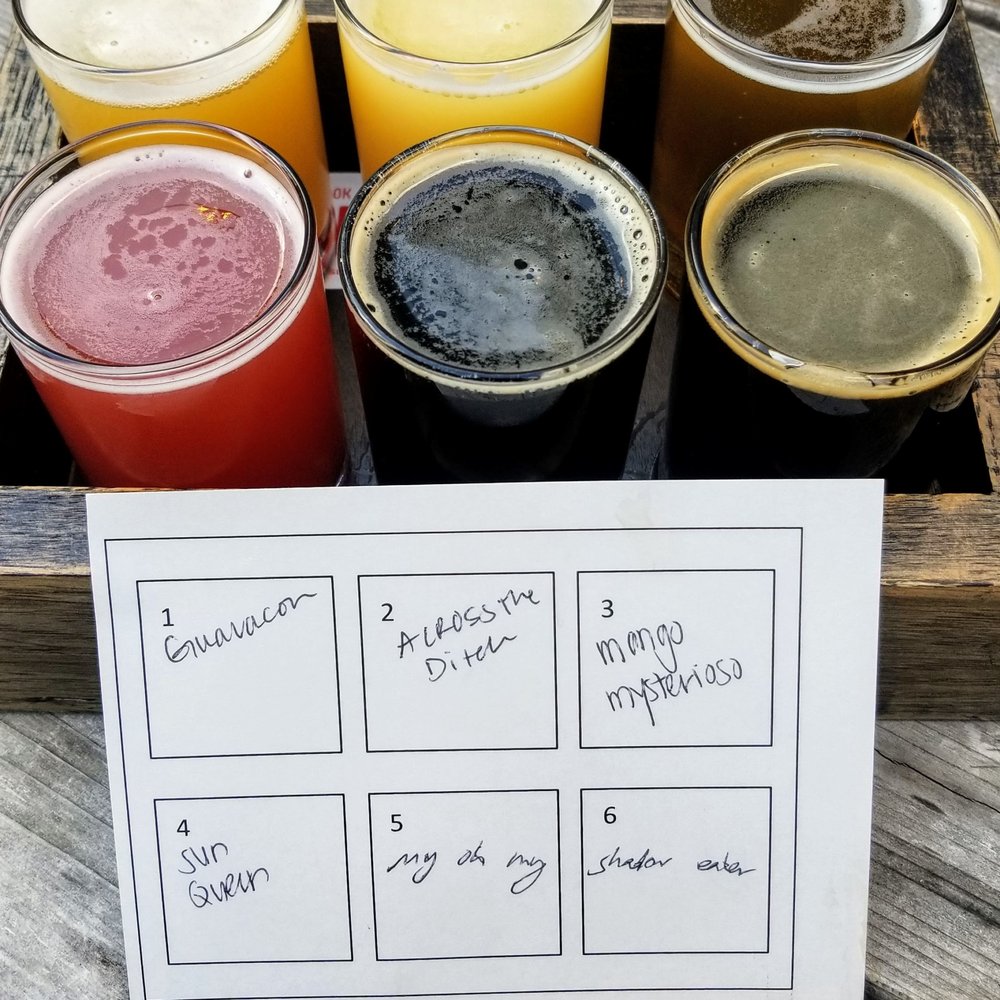 OK
1
Guavacon
2
ACROSS the
Ditch
3
mango
mysterioso
4
Sun
Queen
5
my oh my
6
shadow eater